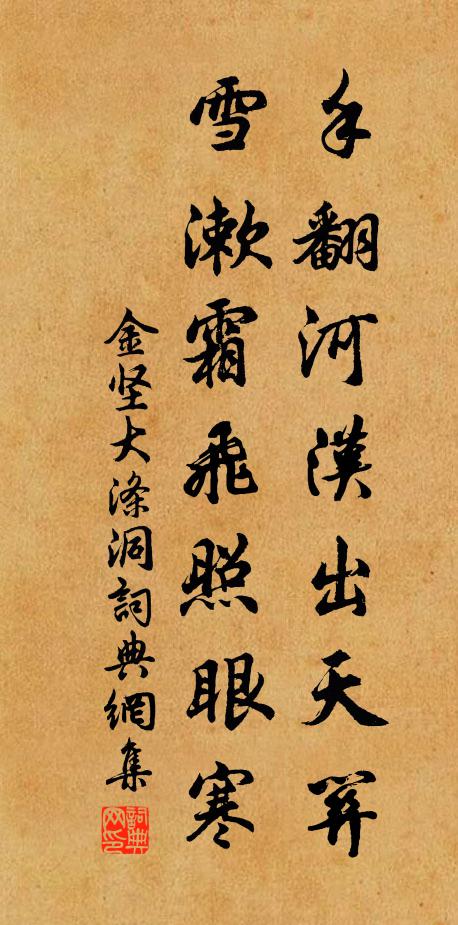 手翻河漢出天關
雪漱霜飛照眼寒
金坚大滌洞詞典網集
詞典网印